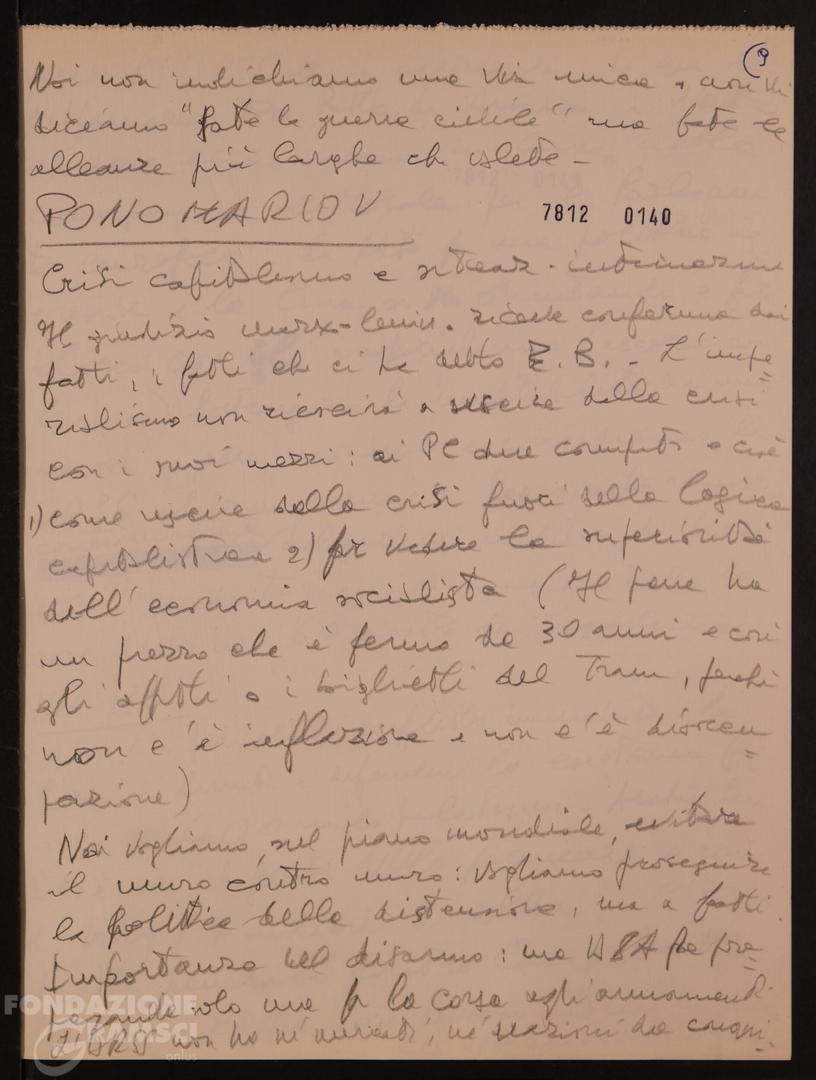 9
Noi non indichiamo una via unica, non vi
diciamo "fate la guerra civile" ma fate le
alleanze più larghe che volete -
PONOMARIOV
7812 0140
Crisi capitalismo e situaz. internazion
Il giudizio marx-lenin. riceve conferma dai
fatti, i fatti che ci ha detto E.B. - L'impe=
rialismo non riuscirà a uscire dalla crisi
con i suoi mezzi: ai PC due compiti e cioè
1) come uscire dalla crisi fuori della logica
capitalistica 2) far vedere la superiorità
dell'economia socialista (Il pane ha
un prezzo che è fermo da 30 anni e così
gli affitti o i biglietti del Tram, perché
non c'è inflazione e non c'è disoccu=
pazione)
Noi vogliamo, sul piano mondiale, evitare
il muro contro muro: vogliamo proseguire
la politica della distensione, ma a fatti.
Importanza del disarmo: ma USA fa pro=
paganda solo ma fa la corsa agli armamenti
L'URSS non ha né mercati, né nazioni da conqui=
FONDAZIONE
GRAMSCI
onlus